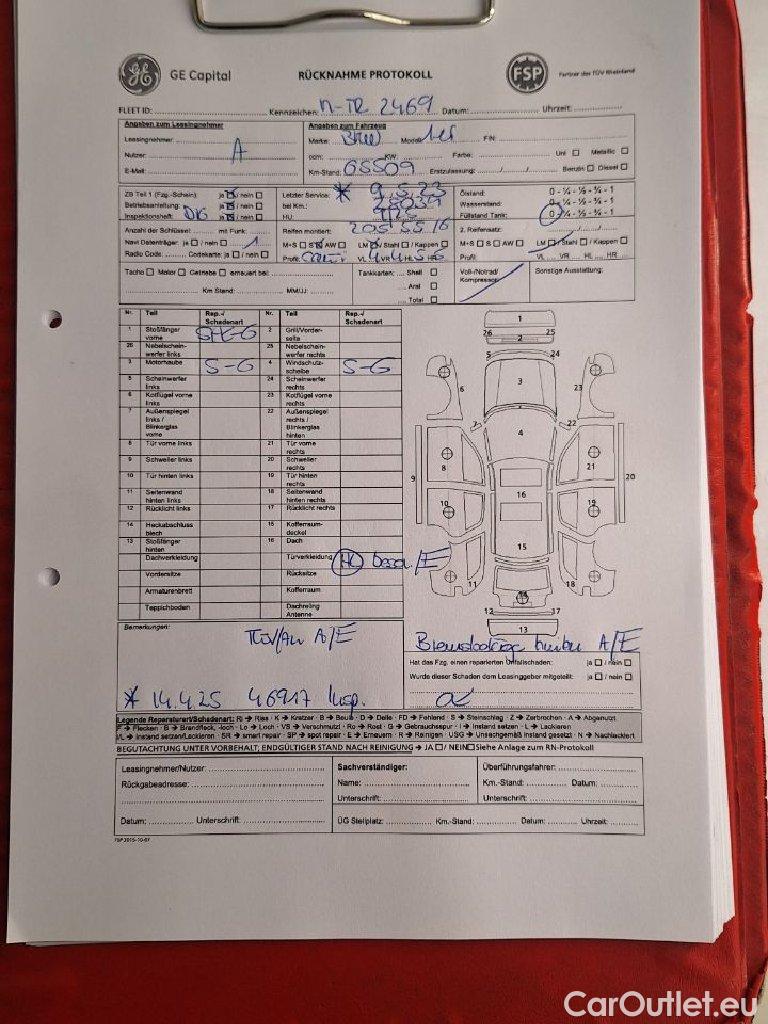 GE Capital
RÜCKNAHME PROTOKOLL
FSP
Partner des TÜV Rheinland
FLEET ID: Kennzeichen: M-TR 2469 Datum: Uhrzeit:
Angaben zum Leasingnehmer
Leasingnehmer:
Nutzer:
E-Mail:
A
Angaben zum Fahrzeug
Marke: BMW Modell: 1er FIN:
ccm: KW: Farbe: Uni Metallic
Km-Stand: 65509 Erstzulassung: / / Benzin Diesel
ZB Teil 1 (Fzg.-Schein): ja / nein
Betriebsanleitung: ja / nein
Inspektionsheft: ja / nein
Anzahl der Schlüssel: mit Funk:
Navi Datenträger: ja / nein 1
Radio Code: Codekarte: ja / nein
Letzter Service: * 9.5.23
bei Km.: 28039
HU:
Reifen montiert: 205 55 16
M+S S AW LM / Stahl / Kappen
Profil: VL VR HL HR
Ölstand: 0 - ¼ - ½ - ¾ - 1
Wasserstand: 0 - ¼ - ½ - ¾ - 1
Füllstand Tank: 0 - ¼ - ½ - ¾ - 1
2. Reifensatz: / /
M+S S AW LM / Stahl / Kappen
Profil: VL VR HL HR
Tacho Motor Getriebe erneuert bei:
Km Stand: MM/JJ:
Tankkarten: Shell
Aral
Total
Voll-/Notrad/
Kompressor
Sonstige Ausstattung:
Nr. Teil Rep.-/ Schadenart Nr. Teil Rep.-/ Schadenart
1 Stoßfänger vorne S-K-G 2 Grill/Vorderseite
26 Nebelscheinwerfer links 25 Nebelscheinwerfer rechts
3 Motorhaube S-G 4 Windschutzscheibe S-G
5 Scheinwerfer links 24 Scheinwerfer rechts
6 Kotflügel vorne links 23 Kotflügel vorne rechts
7 Außenspiegel links / Blinkerglas vorne 22 Außenspiegel rechts / Blinkerglas hinten
8 Tür vorne links 21 Tür vorne rechts
9 Schweller links 20 Schweller rechts
10 Tür hinten links 19 Tür hinten rechts
11 Seitenwand hinten links 18 Seitenwand hinten rechts
12 Rücklicht links 17 Rücklicht rechts
14 Heckabschlussblech 15 Kofferraumdeckel
13 Stoßfänger hinten 16 Dach
Dachverkleidung Türverkleidung
Vordersitze Rücksitze
Armaturenbrett Kofferraum
Teppichboden Dachreling Antenne
1
26 25
2
5 24
6 3 23
7 22
4
8 21
9 20
16
10 19
15
11 18
14
12 17
13
Bemerkungen:
TÜV/AU A/E
* 14.4.25 46917 Insp.
Bremsbeläge hinten A/E
Hat das Fzg. einen reparierten Unfallschaden: ja / nein
Wurde dieser Schaden dem Leasinggeber mitgeteilt: ja / nein
Legende Reparaturart/Schadenart: RI → Riss · K → Kratzer · B → Beule · D → Delle · FD → Fehlend · S → Steinschlag · Z → Zerbrochen · A → Abgenutzt
F → Flecken · BI → Brandfleck, -loch · Lo → Loch · VS → Verschmutzt · Ro → Rost · G → Gebrauchsspur · I → Instand setzen · L → Lackieren
I/L → Instand setzen/Lackieren · SR → smart repair · SP → spot repair · E → Erneuern · R → Reinigen · USG → Unsachgemäß instand gesetzt · N → Nachlackiert
BEGUTACHTUNG UNTER VORBEHALT, ENDGÜLTIGER STAND NACH REINIGUNG → JA / NEIN Siehe Anlage zum RN-Protokoll
Leasingnehmer/Nutzer:
Rückgabeadresse:
Datum: Unterschrift:
Sachverständiger:
Name:
Unterschrift:
Überführungsfahrer:
Km.-Stand: Datum:
Unterschrift:
ÜG Stellplatz: Km.-Stand: Datum: Uhrzeit:
FSP 2015-10-07
CarOutlet.eu